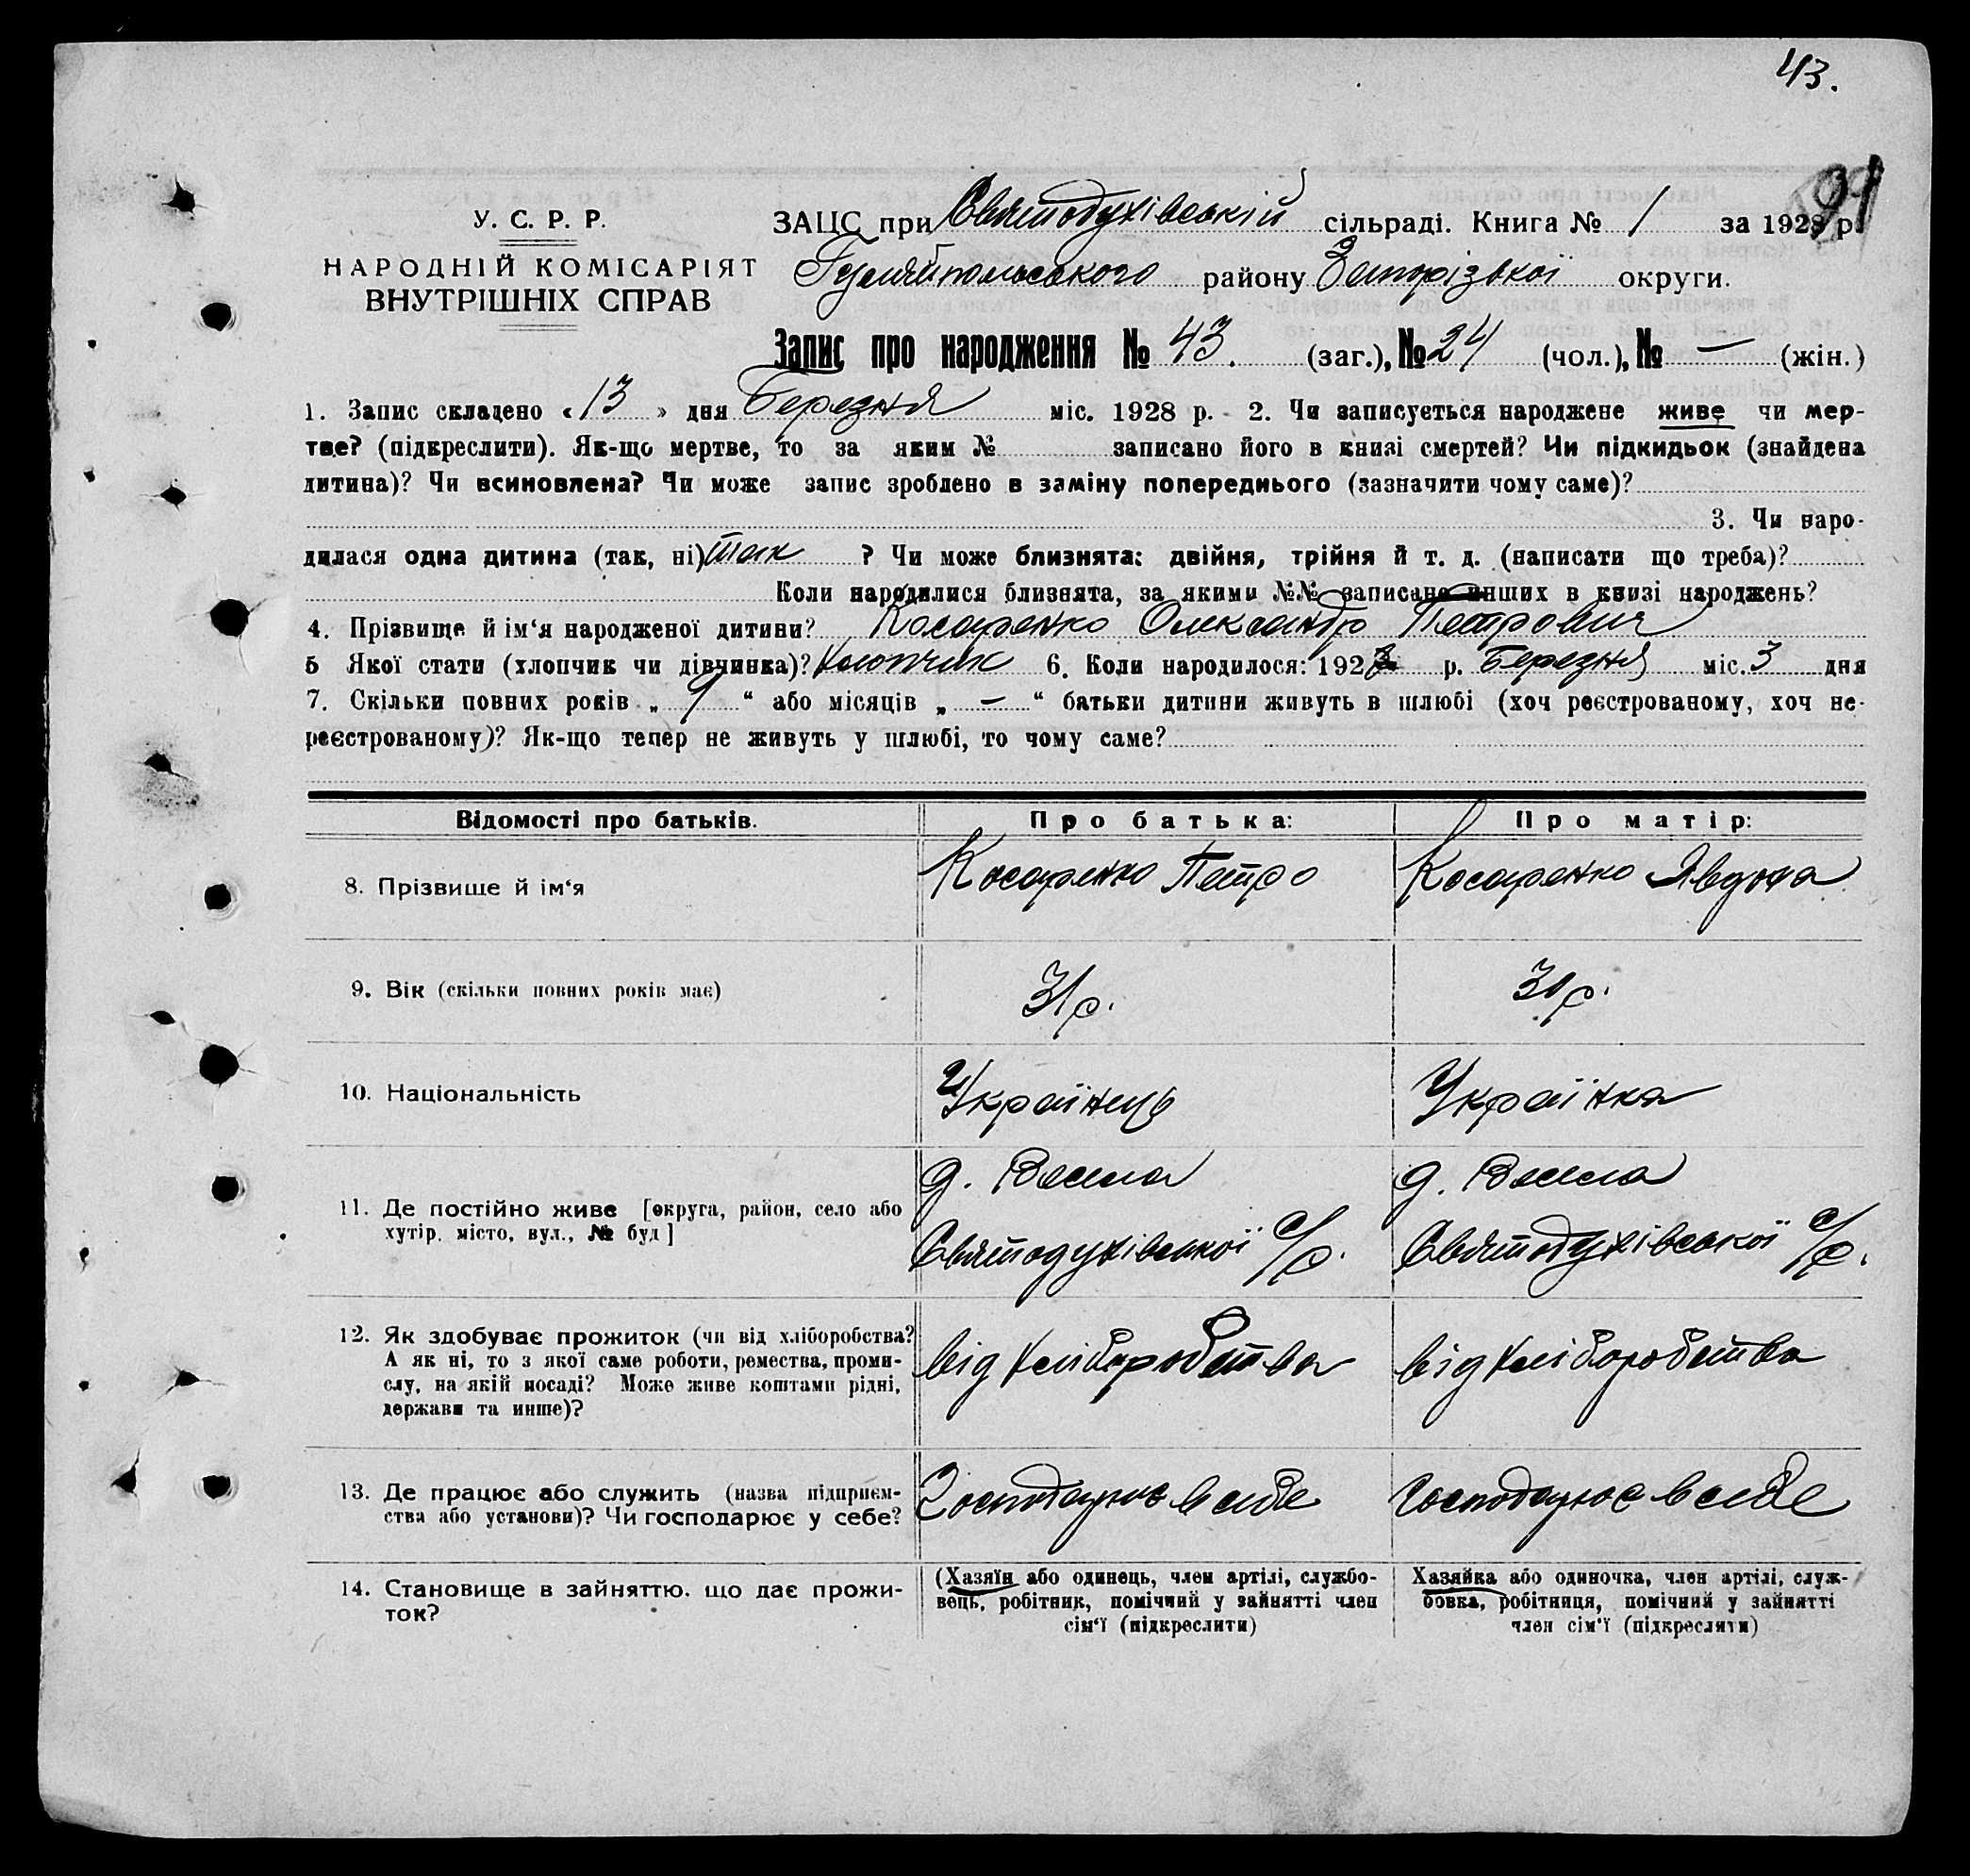 43.
У. С. Р. Р.
НАРОДНІЙ КОМІСАРІЯТ
ВНУТРІШНІХ СПРАВ
ЗАЦС при Святодухівській сільраді. Книга № 1 за 1928 р.
Гуляйпольського району Запорізької округи.
Запис про народження № 43. (заг.), № 24 (чол.), № — (жін.)
1. Запис складено « 13 » дня Березня міс. 1928 р. - 2. Чи записується народжене живе чи мер-
тве? (підкреслити). Як-що мертве, то за яким № записано його в книзі смертей? Чи підкидьок (знайдена
дитина)? Чи всиновлена? Чи може запис зроблено в заміну попереднього (зазначити чому саме)?
3. Чи наро-
дилася одна дитина (так, ні) так ? Чи може близнята: двійня, трійня й т. д. (написати що треба)?
Коли народилися близнята, за якими №№ записано инших в книзі народжень?
4. Прізвище й ім‘я народженої дитини? Косаренко Олександр Петрович
5 Якої стати (хлопчик чи дівчинка)? Хлопчик 6. Коли народилося: 192 р. Березня міс. 3 дня
7. Скільки повних років „ 9 “ або місяців „ — “ батьки дитини живуть в шлюбі (хоч реєстрованому, хоч не-
реєстрованому)? Як-що тепер не живуть у шлюбі, то чому саме?
Відомості про батьків. Про батька: Про матір:
8. Прізвище й ім‘я Косаренко Петро Косаренко Явдоха
9. Вік (скільки повних років має) 31 р. 31 р.
10. Національність Українець Українка
д. Весела д. Весела
11. Де постійно живе [округа, район, село або
хутір, місто, вул., № буд] Святодухівської с/р. Святодухівської с/р.
12. Як здобуває прожиток (чи від хліборобства?
А як ні, то з якої саме роботи, ремества, проми-
слу, на якій посаді? Може живе коштами рідні,
держави та инше)? від хліборобства від хліборобства
13. Де працює або служить (назва підприєм-
ства або установи)? Чи господарює у себе? Господарює в себе Господарює в себе
14. Становище в зайняттю, що дає прожи-
ток?
(Хазяїн або одинець, член артілі, службо-
вець, робітник, помічний у зайнятті член
сім‘ї (підкреслити)
Хазяйка або одиночка, член артілі, служ-
бовка, робітниця, помічний у зайнятті
член сім‘ї (підкреслити)